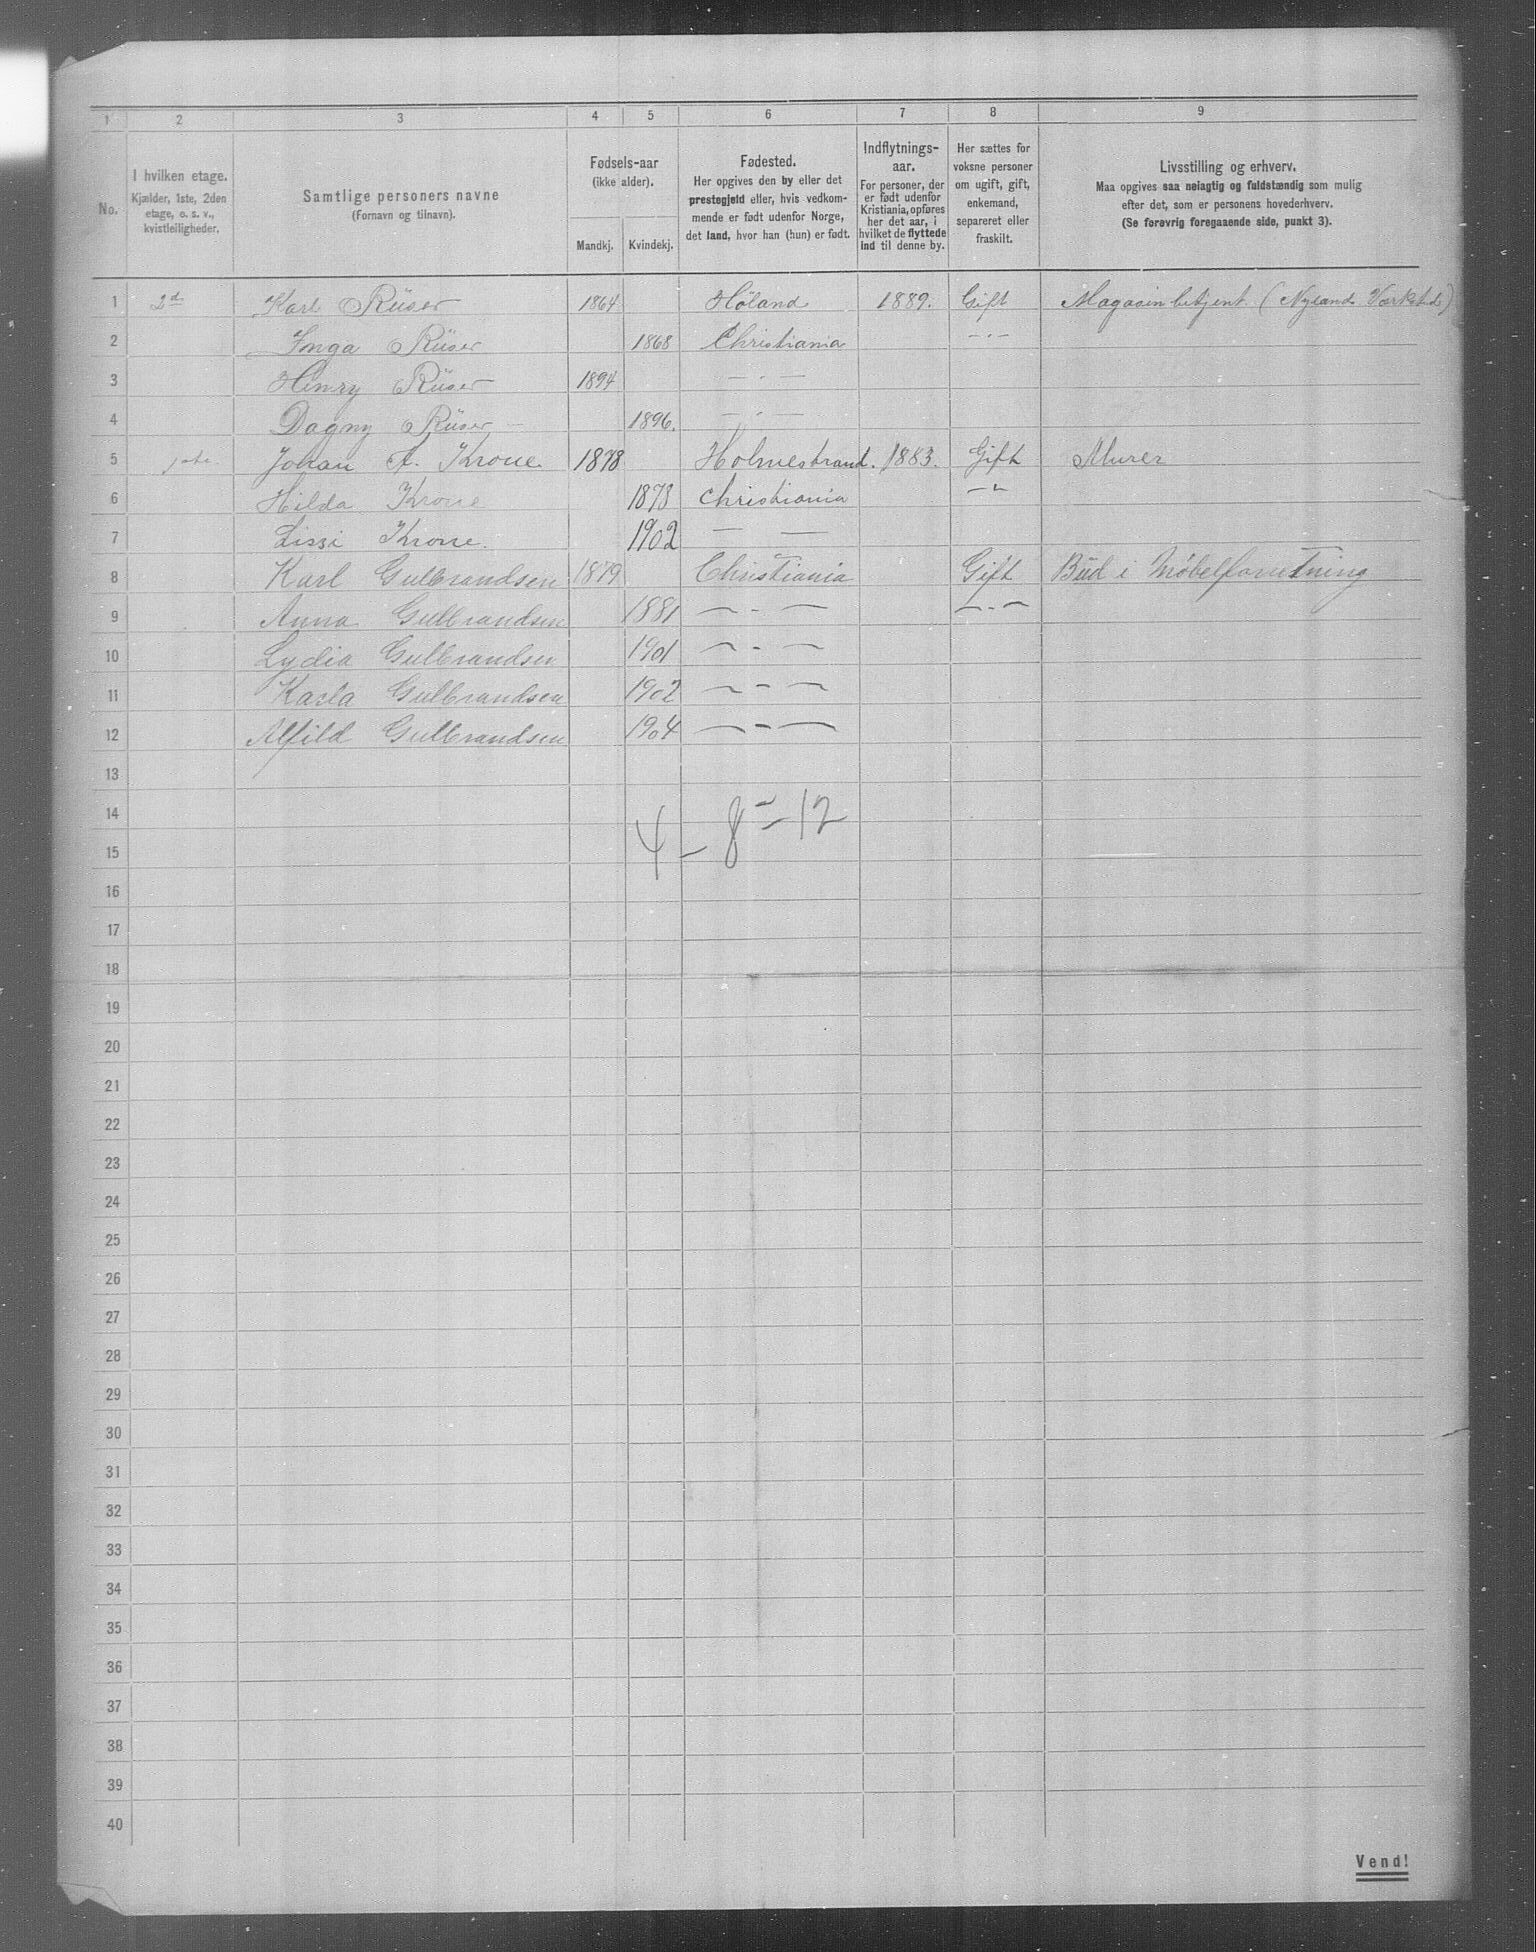 1 2 3 4 5 6 7 8 9
No.
I hvilken etage.
Kjælder, 1ste, 2den
etage, o. s. v.,
kvistleiligheder.
Samtlige personers navne
(Fornavn og tilnavn).
Fødsels-aar
(ikke alder).
Mandkj. Kvindekj.
Fødested.
Her opgives den by eller det
prestegjeld eller, hvis vedkom-
mende er født udenfor Norge,
det land, hvor han (hun) er født.
Indflytnings-
aar.
For personer, der
er født udenfor
Kristiania, opføres
her det aar, i
hvilket de flyttede
ind til denne by.
Her sættes for
voksne personer
om ugift, gift,
enkemand,
separeret eller
fraskilt.
Livsstilling og erhverv.
Maa opgives saa nøiagtig og fuldstændig som mulig
efter det, som er personens hovederhverv.
(Se forøvrig foregaaende side, punkt 3).
1 2d Karl Rüser 1864 Høland 1889. Gift Magasinbetjent (Nylands Værksted)
2 Inga Rüser 1868 Christiania — · —
3 Henry Rüser 1894 — · —
4 Dagny Rüser 1896. — " —
5 1ste Johan A. Krone. 1878 Holmestrand. 1883. Gift Murer
6 Hilda Krone 1878 Christiania — " —
7 Lissi Krone. 1902 — —
8 Karl Gulbrandsen 1879 Christiania Gift Bud i Møbelforretning
9 Anna Gulbrandsen 1881 — - — — - —
10 Lydia Gulbrandsen 1901 — - —
11 Karla Gulbrandsen 1902 — - —
12 Alfild Gulbrandsen 1904 — - —
13
14
4 - 8 = 12
15
16
17
18
19
20
21
22
23
24
25
26
27
28
29
30
31
32
33
34
35
36
37
38
39
40
Vend!